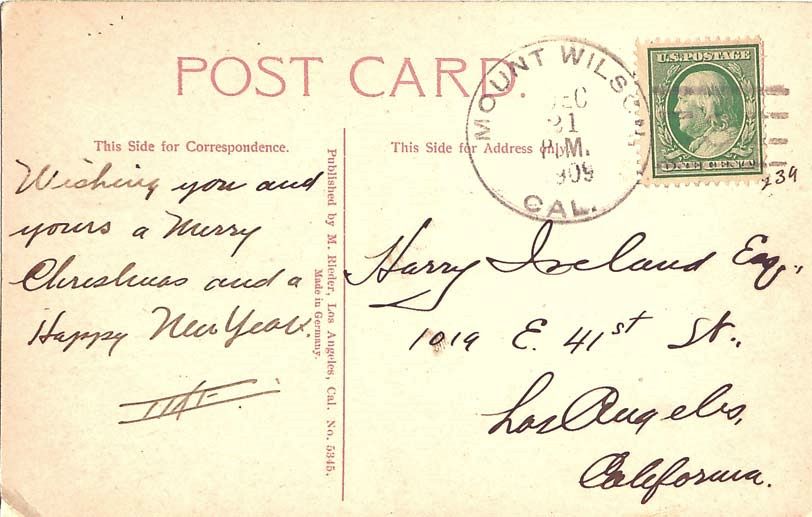 POST CARD.
This Side for Correspondence.
This Side for Address Only.
MOUNT WILSON
DEC
21
P.M.
1909
CAL.
U.S. POSTAGE
ONE CENT
239
Wishing you and
yours a Merry
Christmas and a
Happy New Year.
Published by M. Rieder, Los Angeles, Cal. No. 5345.
Made in Germany.
Harry Ireland Esq.,
1019 E. 41st St.,
Los Angeles,
California.